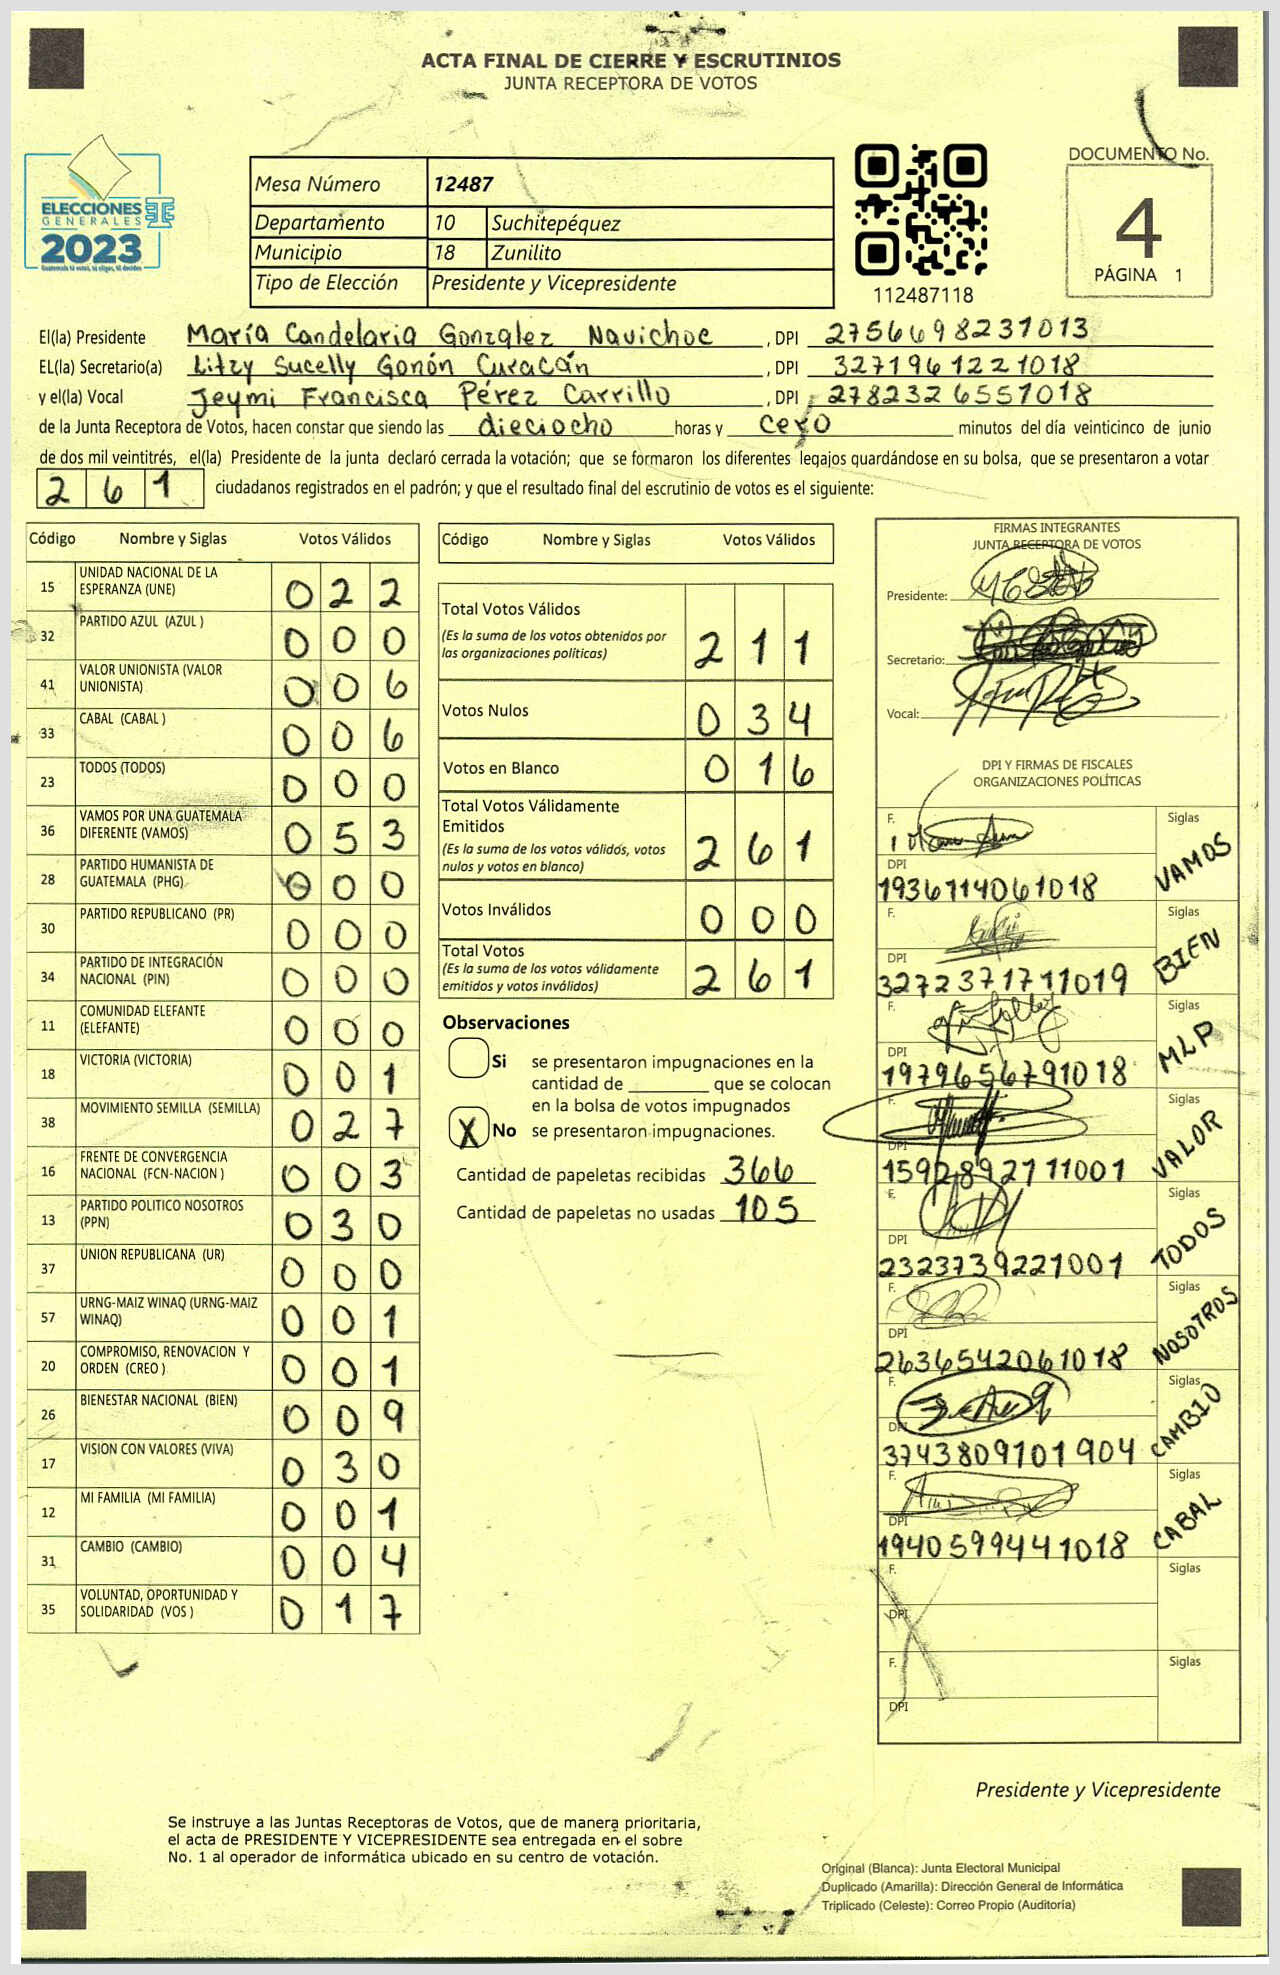 ACTA FINAL DE CIERRE Y ESCRUTINIOS
JUNTA RECEPTORA DE VOTOS
ELECCIONES
GENERALES
2023
Guatemala tú votas, tú eliges, tú decides
Mesa Número 12487
Departamento 10 Suchitepéquez
Municipio 18 Zunilito
Tipo de Elección Presidente y Vicepresidente
112487118
DOCUMENTO No.
4
PÁGINA 1
El(la) Presidente María Candelaria Gonzalez Navichoc , DPI 2756698231013
EL(la) Secretario(a) Litzy Sucelly Gonón Curacán , DPI 3271961221018
y el(la) Vocal Jeymi Francisca Pérez Carrillo , DPI 2782326551018
de la Junta Receptora de Votos, hacen constar que siendo las dieciocho horas y cero minutos del día veinticinco de junio
de dos mil veintitrés, el(la) Presidente de la junta declaró cerrada la votación; que se formaron los diferentes legajos guardándose en su bolsa, que se presentaron a votar
261 ciudadanos registrados en el padrón; y que el resultado final del escrutinio de votos es el siguiente:
Código Nombre y Siglas Votos Válidos
15 UNIDAD NACIONAL DE LA ESPERANZA (UNE) 022
32 PARTIDO AZUL (AZUL ) 000
41 VALOR UNIONISTA (VALOR UNIONISTA) 006
33 CABAL (CABAL ) 006
23 TODOS (TODOS) 000
36 VAMOS POR UNA GUATEMALA DIFERENTE (VAMOS) 053
28 PARTIDO HUMANISTA DE GUATEMALA (PHG) 000
30 PARTIDO REPUBLICANO (PR) 000
34 PARTIDO DE INTEGRACIÓN NACIONAL (PIN) 000
11 COMUNIDAD ELEFANTE (ELEFANTE) 000
18 VICTORIA (VICTORIA) 001
38 MOVIMIENTO SEMILLA (SEMILLA) 027
16 FRENTE DE CONVERGENCIA NACIONAL (FCN-NACION ) 003
13 PARTIDO POLITICO NOSOTROS (PPN) 030
37 UNION REPUBLICANA (UR) 000
57 URNG-MAIZ WINAQ (URNG-MAIZ WINAQ) 001
20 COMPROMISO, RENOVACION Y ORDEN (CREO ) 001
26 BIENESTAR NACIONAL (BIEN) 009
17 VISION CON VALORES (VIVA) 030
12 MI FAMILIA (MI FAMILIA) 001
31 CAMBIO (CAMBIO) 004
35 VOLUNTAD, OPORTUNIDAD Y SOLIDARIDAD (VOS ) 017
Código Nombre y Siglas Votos Válidos
Total Votos Válidos 211
(Es la suma de los votos obtenidos por
las organizaciones politicas)
Votos Nulos 034
Votos en Blanco 016
Total Votos Válidamente
Emitidos 261
(Es la suma de los votos válidos, votos
nulos y votos en blanco)
Votos Inválidos 000
Total Votos 261
(Es la suma de los votos válidamente
emitidos y votos inválidos)
Observaciones
Si se presentaron impugnaciones en la
cantidad de ________ que se colocan
en la bolsa de votos impugnados
X No se presentaron impugnaciones.
Cantidad de papeletas recibidas 366
Cantidad de papeletas no usadas 105
FIRMAS INTEGRANTES
JUNTA RECEPTORA DE VOTOS
Presidente:
Secretario:
Vocal:
DPI Y FIRMAS DE FISCALES
ORGANIZACIONES POLÍTICAS
F. Siglas
DPI
1936114061018 VAMOS
F. Siglas
DPI
3272371711019 BIEN
F. Siglas
DPI
1979656791018 MLP
F. Siglas
DPI
1592892711001 VALOR
F. Siglas
DPI
2323739221001 TODOS
F. Siglas
DPI
2636542061018 NOSOTROS
F. Siglas
DPI
3743809101904 CAMBIO
F. Siglas
DPI
1940599441018 CABAL
F. Siglas
DPI
F. Siglas
DPI
Presidente y Vicepresidente
Se instruye a las Juntas Receptoras de Votos, que de manera prioritaria,
el acta de PRESIDENTE Y VICEPRESIDENTE sea entregada en el sobre
No. 1 al operador de informática ubicado en su centro de votación.
Original (Blanca): Junta Electoral Municipal
Duplicado (Amarilla): Dirección General de Informática
Triplicado (Celeste): Correo Propio (Auditoría)